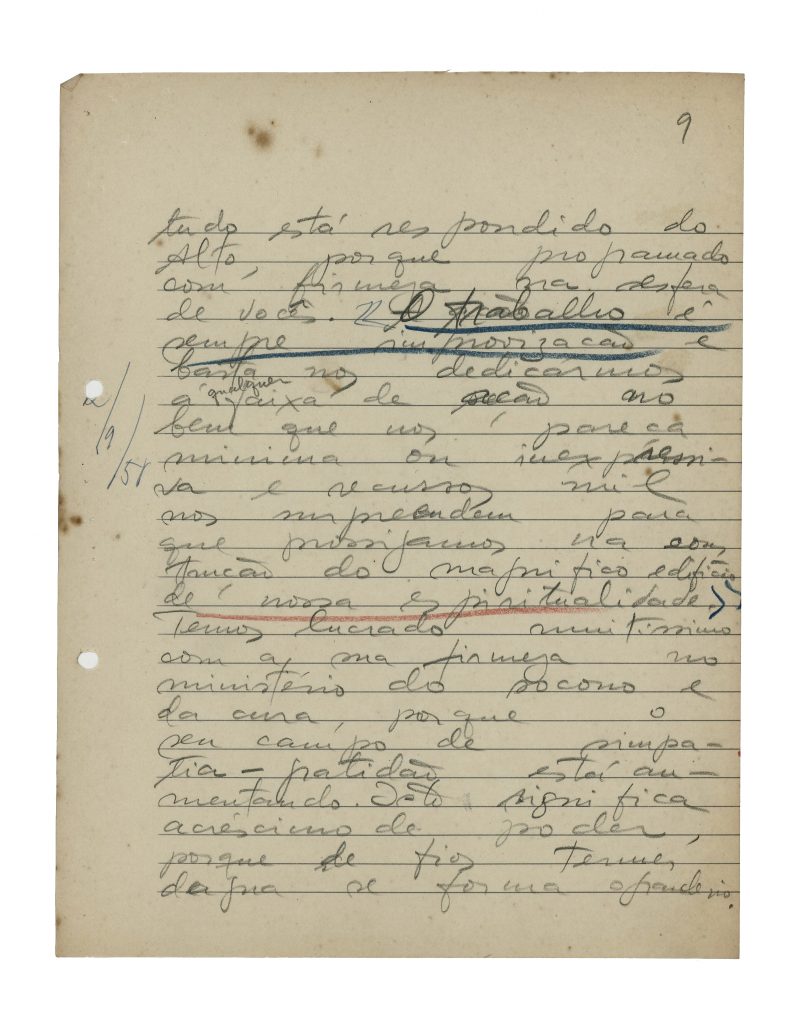 9
tudo está respondido do
Alto, porque programado
com firmeza na esfera
de vocês. "O trabalho é
sempre improvização e
basta nos dedicarmos
a qualquer faixa de ação no
bem que nos pareça
minima ou inexpressi-
va e recursos mil
nos surpreendem para
que prossigamos na cons
trução do magnifico edifício
de nossa espiritualidade."
Temos lucrado muitissimo
com a sua firmeza no
ministério do socorro e
da cura, porque o
seu campo de simpa-
tia-gratidão está au-
mentando. Isto significa
acréscimo de poder,
porque de fios tenues
dagua se forma o grande rio.
2/9/58